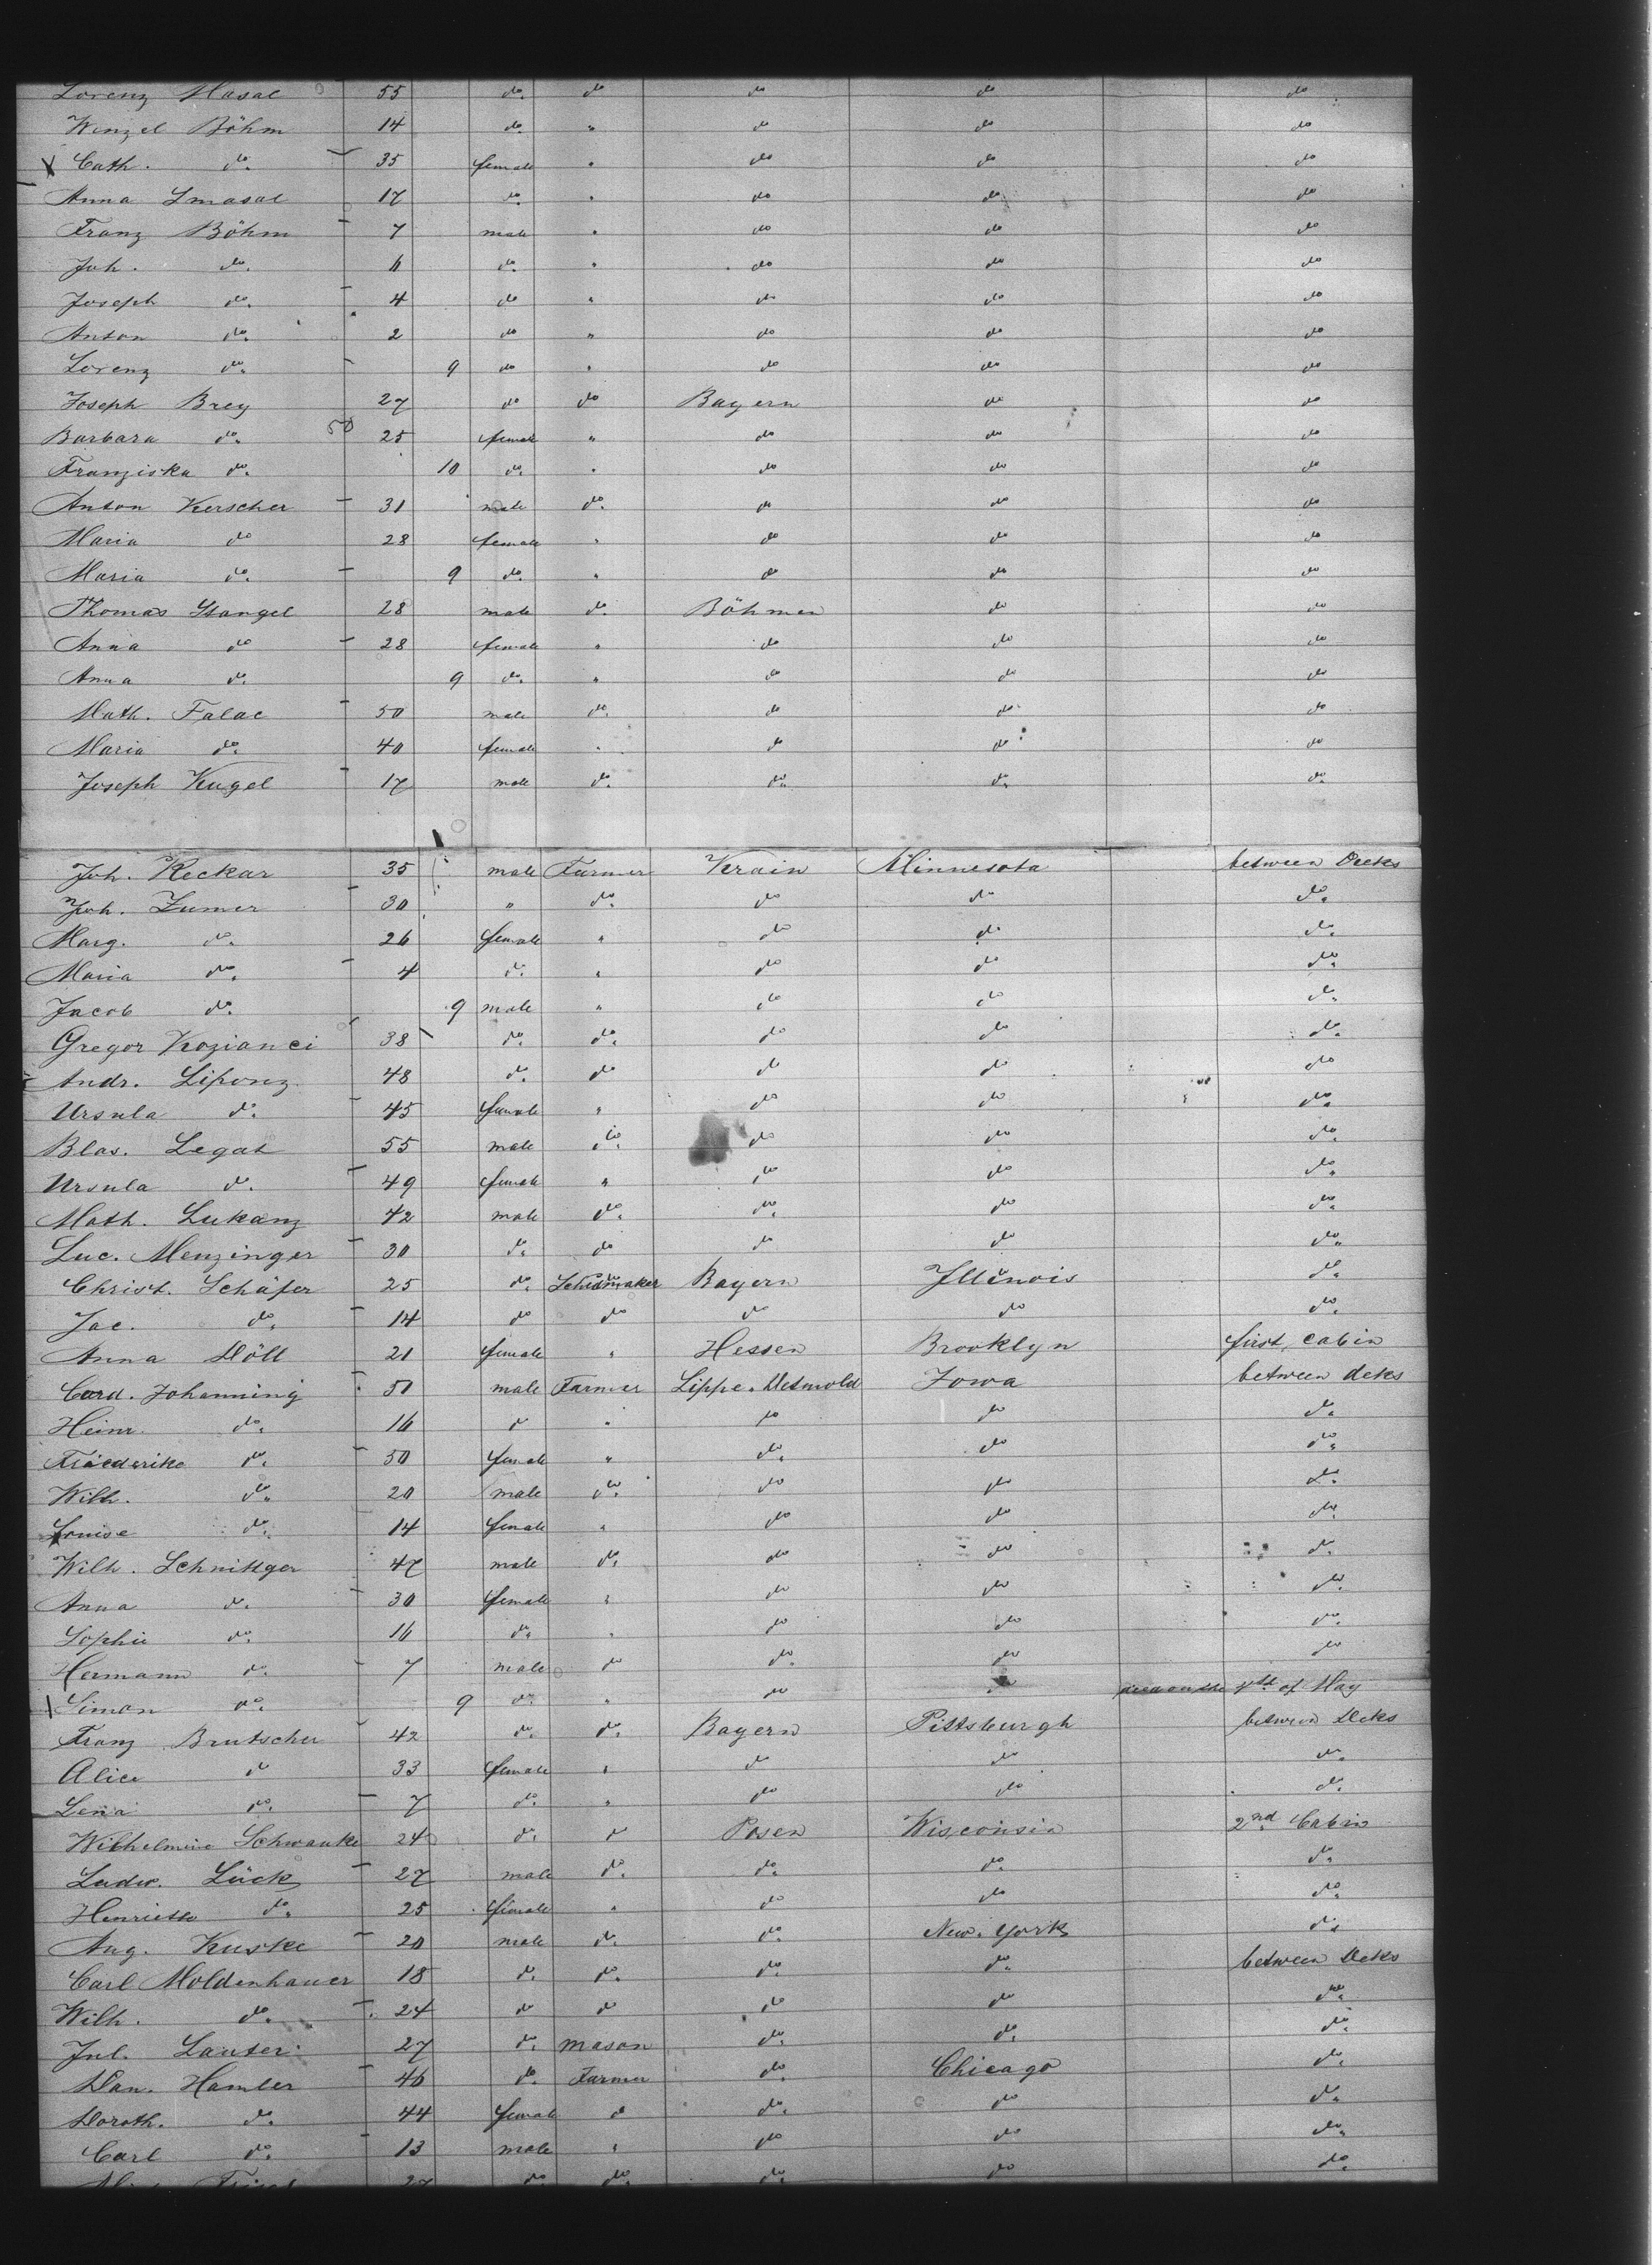 Lorenz Masal 55 do. do do do do
Wenzel Böhm 14 do. " do do do
Cath. do. 35 female " do do do
Anna Smasal 17 do. " do do do
Franz Böhm 7 male " do do do
Joh. do. 6 do. " do do do
Joseph do. 4 do " do do do
Anton do. 2 do " do do do
Lorenz do. 9 do " do do do
Joseph Brey 27 do do Bayern do do
Barbara do. 25 female " do do do
Franziska do. 10 do. " do do do
Anton Kerscher 31 male do. do do do
Maria do 28 female " do do do
Maria do. 9 do. " do do do
Thomas Stangel 28 male do. Böhmen do do
Anna do 28 female " do do do
Anna do. 9 do. " do do do
Math. Falac 50 male do. do do do
Maria do. 40 female " do do do
Joseph Kugel 17 male do. do. do. do.
Joh. Reckar 35 male Farmer Krain Minnesota between Decks
Joh. Zumer 30 " do. do do do.
Marg. do. 26 female " do do do.
Maria do. 4 do. " do do do.
Jacob do. 9 male " do do do.
Gregor Kozianci 38 do. do. do do do.
Andr. Liponz 48 do. do do do do
Ursula do. 45 female " do do do.
Blas. Legat 55 male do. do do do.
Ursula do. 49 female " do do do.
Math. Lukanz 42 male do. do. do do.
Luc. Menzinger 30 do. do do do do.
Christ. Schäfer 25 do. Bayern Illinois do.
Jac. do. 14 do do do do do.
Anna Döll 21 female " Hessen Brooklyn first cabin
Cord. Johanning 51 male Farmer Lippe-Detmold Iowa between deks
Heinr. do. 16 do " do do do.
Friederike do. 50 female " do. do do.
Wilh. do. 20 male do. do do do.
Louise do. 14 female " do do do.
Wilh. Schnittger 47 male do. do do do.
Anna do. 30 female " do do do.
Sophie do. 16 do. " do do do.
Hermann do. 7 male do do. do do
Simon do. 9 do. " do do died on the 4th of May
Franz Brutscher 42 do. do. Bayern Pittsburgh between Deks
Alice do 33 female " do do do.
Lena do. 7 do. " do do do.
Wilhelmine Schwanke 24 do. do Posen Wisconsin 2nd Cabin
Ludw. Lück 27 male do. do. do. do.
Henriette do. 25 female " do do do.
Aug. Kuske 20 male do. do. New-York do.
Carl Moldenhauer 18 do. do. do. do. between Deks
Wilh. do. 24 do do do do do.
Jul. Lauter 27 do. mason do. do. do.
Dan. Hamler 46 do. Farmer do. Chicago do.
Doroth. do. 44 female do do. do do.
Carl do. 13 male " do do do.
27 do. do. do. do do.